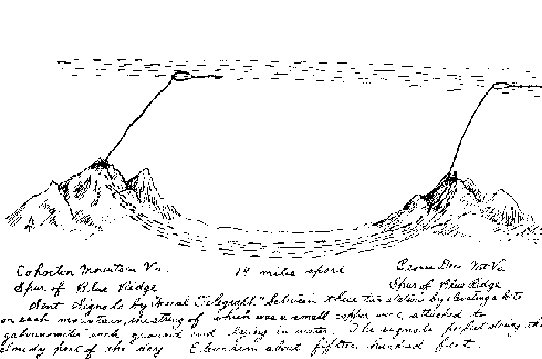 Cohocton Mountain Va. 14 miles apart Beorse Deer Mt Va
Spur of Blue Ridge Spur of Blue Ridge
Sent Signals by "Aerial Telegraph" between these two stations by floating a kite
on each mountain, the string of which was a small copper wire, attached to
galvanometer and ground and being in water. The signals perfect during the
Cloudy part of the day Elevation about fifteen hundred feet.